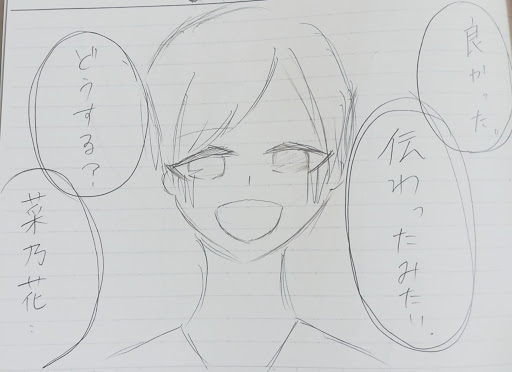 良かった。
伝わったみたい.
どうする?
菜乃花.